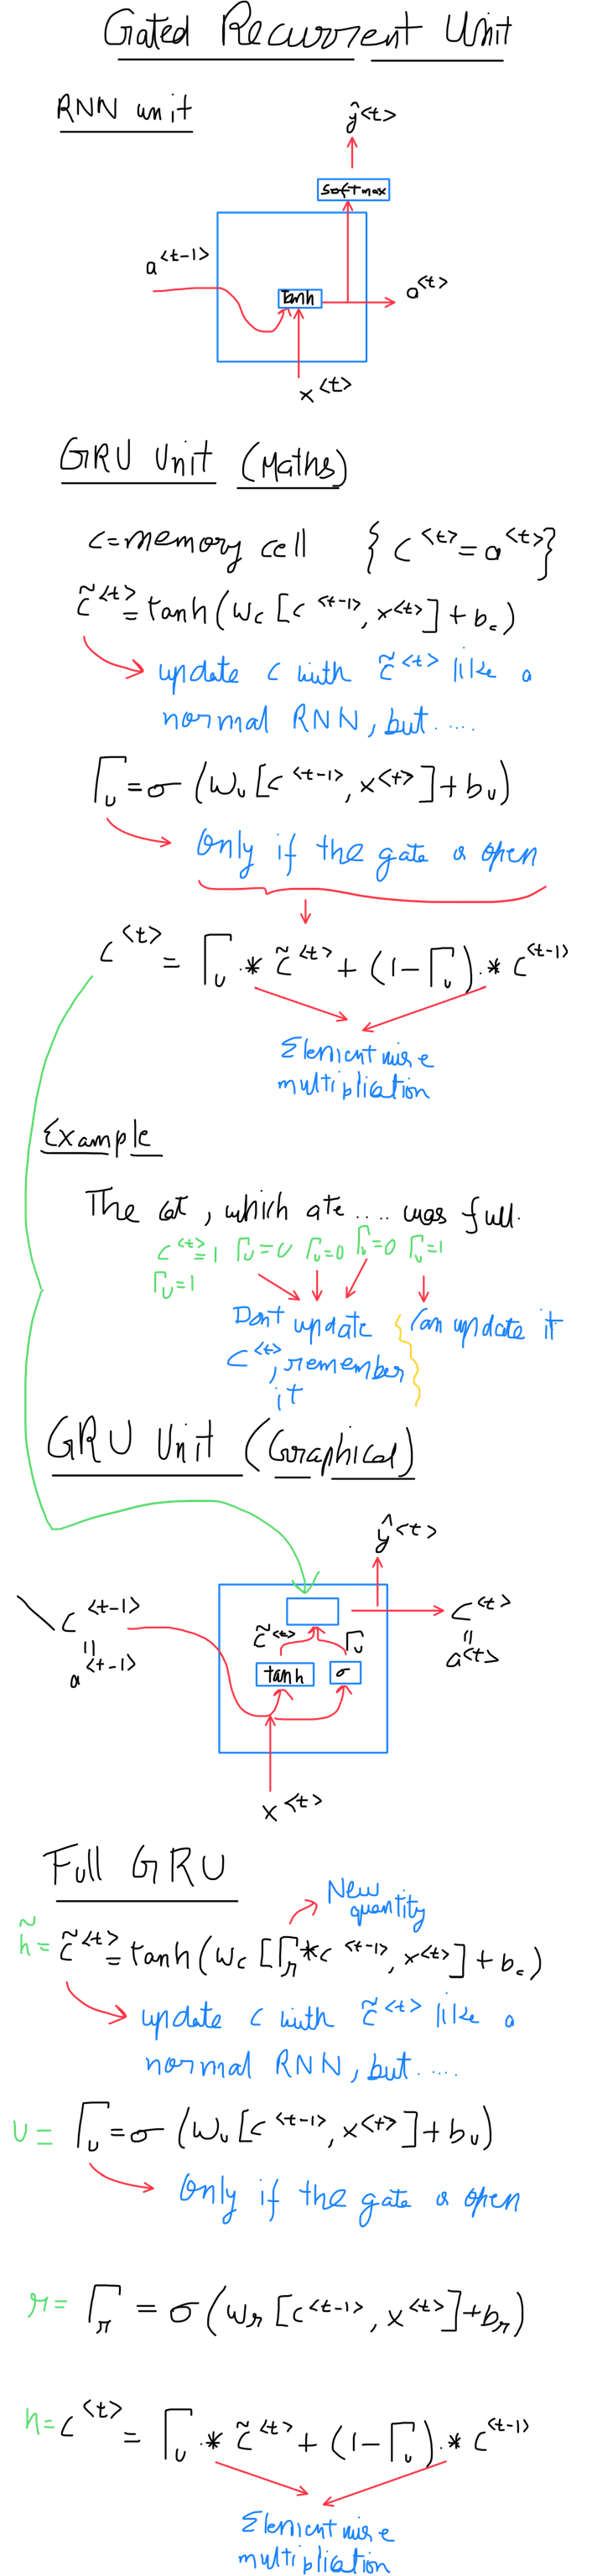 Gated Recurrent Unit
RNN unit
ŷ<t>
softmax
a<t-1>
Tanh
a<t>
x<t>
GRU Unit (Maths)
c=memory cell { c<t> = a<t> }
c̃<t> = tanh(Wc [c<t-1>, x<t>] + bc)
update c with c̃<t> like a
normal RNN, but....
Γu = σ (Wu [c<t-1>, x<t>] + bu)
Only if the gate is open
c<t> = Γu .* c̃<t> + (1-Γu) .* c<t-1>
Element wise
multiplication
Example
The cat, which ate .... was full.
c<t>=1 Γu=0 Γu=0 Γu=0 Γu=1
Γu=1
Dont update
c<t>, remember
it
Can update it
GRU Unit (Graphical)
ŷ<t>
c<t-1>
=
a<t-1>
c̃<t>
Γu
tanh
σ
c<t>
=
a<t>
x<t>
Full GRU
New
quantity
h̃ = c̃<t> = tanh(Wc [Γr * c<t-1>, x<t>] + bc)
update c with c̃<t> like a
normal RNN, but....
U = Γu = σ (Wu [c<t-1>, x<t>] + bu)
Only if the gate is open
r = Γr = σ (Wr [c<t-1>, x<t>] + br)
h = c<t> = Γu .* c̃<t> + (1-Γu) .* c<t-1>
Element wise
multiplication